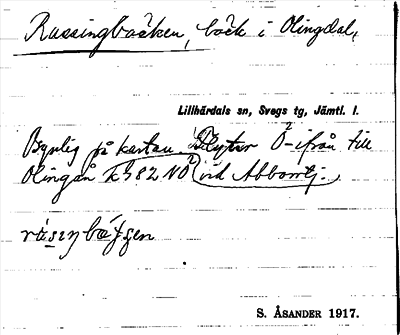 Russingbäcken, bäck i Olingdal,
Lillhärdals sn, Svegs tg, Jämtl. l.
Synlig på kartan. Flyter Ö-ifrån till
Olingån k 982 NO vid Abborrtj.
S. ÅSANDER 1917.